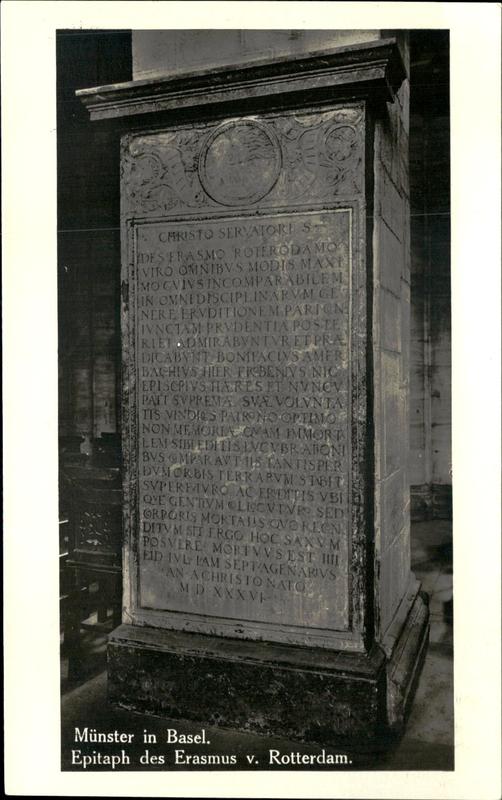 CHRISTO SERVATORI S
DES ERASMO ROTERODAMO
VIRO OMNIBVS MODIS MAXI
MO CVIVS INCOMPARABILEM
IN OMNI DISCIPLINARVM GE
NERE ERVDITIONEM PARI CN
IVNCTAM PRVDENTIA POSTE
RI ET ADMIRABVNTVR ET PRÆ
DICABVNT BONIFACIVS AMER
BACHIVS HIER FROBENIVS NIC
EPISCPIVS HÆRES ET NVNCV
PATI SVPREMÆ SVÆ VOLVNTA
TIS VINDICES PATRONO OPTIMO
NON MEMORIÆ QVAM IMMORT
LEM SIBI EDITIS LVCVBRATIONI
BVS COMPARAVIT IIS TANTISPER
DVM ORBIS TERRARVM STABIT
SVPERFVTVRO AC ERVDITIS VBI
QVE GENTIVM COLLECVTVRO SED
CORPORIS MORTALIS QVO RECON
DITVM SIT ERGO HOC SAXVM
POSVERE MORTVVS EST IIII
EID IVL IAM SEPTVAGENARIVS
AN A CHRISTO NATO
M D XXXVI
Münster in Basel.
Epitaph des Erasmus v. Rotterdam.